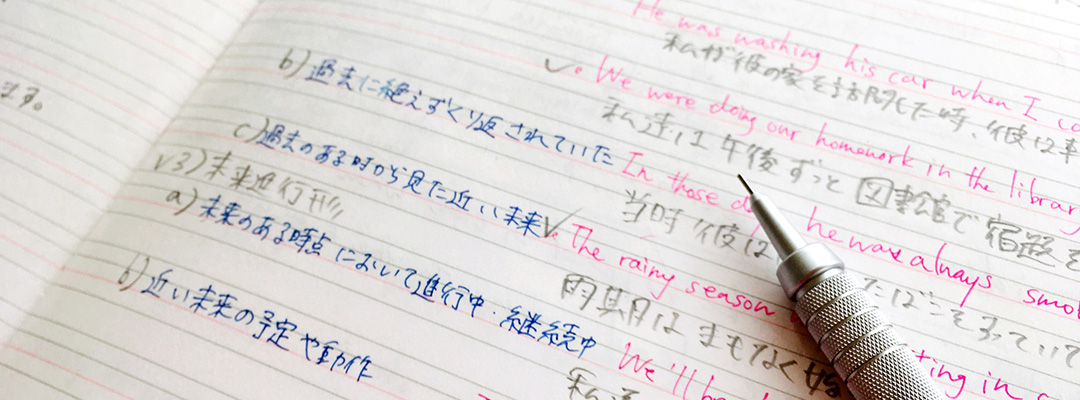 ます。
He was washing his car when I
私が彼の家を訪問した時、彼は車
b) 過去に絶えずくり返されていた
✓. We were doing our homework in the library
私達は午後ずっと図書館で宿題を
c) 過去のある時から見た近い未来
In those he was always smo
当時彼は たばこをすっていて
✓3) 未来進行形
✓. The rainy season ting in
雨期は まもなく
a) 未来のある時点において進行中・継続中
We'll be
私達
b) 近い未来の予定や動作